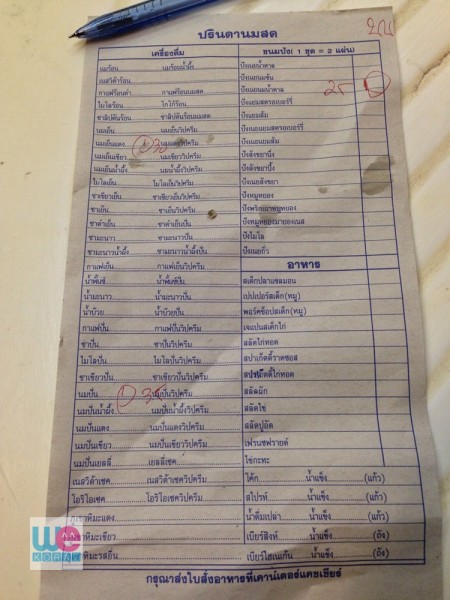 ปรินดานมสด
เครื่องดื่ม ขนมปัง( 1 ชุด = 2 แผ่น)
นมร้อน นมร้อนน้ำผึ้ง ปังเนยน้ำตาล
เนสวิต้าร้อน ปังเนยนมข้น
กาแฟร้อนดำ กาแฟร้อนนมสด ปังเนยนมน้ำตาล 25 1
ไมโลร้อน โกโก้ร้อน ปังเนยสตรอเบอร์รี่
ชาลิปตันร้อน ชาลิปตันร้อนนมสด ปังเนยส้ม
นมเย็น นมเย็นวิปครีม ปังเนยนมสตรอเบอร์รี่
นมเย็นแดง 1 30 นมแดงวิปครีม ปังเนยนมส้ม
นมเย็นเขียว นมเขียววิปครีม ปังสังขยานึ่ง
นมเย็นน้ำผึ้ง นมน้ำผึ้งวิปครีม ปังสังขยาปิ้ง
ไมโลเย็น ไมโลเย็นวิปครีม ปังเนยสังขยา
ชาเขียวเย็น ชาเขียวเย็นวิปครีม ปังหมูหยอง
ชาเย็น ชาเย็นวิปครีม ปังพริกเผาหมูหยอง
ชาดำเย็น ชาดำเย็นปั่น ปังหมูหยองมายองเนส
ชามะนาว ชามะนาวปั่น ปังไมโล
ชามะนาวน้ำผึ้ง ชามะนาวน้ำผึ้งปั่น ปังเนยถั่ว
กาแฟเย็น กาแฟเย็นวิปครีม อาหาร
น้ำพั้นช์ น้ำพั้นช์ปั่น สเต็กปลาแซลมอน
น้ำมะนาว น้ำมะนาวปั่น เปปเปอร์สเต็ก(หมู)
น้ำบ๊วย น้ำบ๊วยปั่น พอร์คช็อปสเต็ก(หมู)
กาแฟปั่น กาแฟปั่นวิปครีม เจแปนสเต็กไก่
ชาปั่น ชาปั่นวิปครีม สลัดไก่ทอด
ไมโลปั่น ไมโลปั่นวิปครีม สปาเก็ตตี้ราดซอส
ชาเขียวปั่น ชาเขียวปั่นวิปครีม สปาเก็ตตี้ไก่ทอด
นมปั่น 1 35 นมปั่นวิปครีม สลัดผัก
นมปั่นน้ำผึ้ง นมปั่นน้ำผึ้งวิปครีม สลัดไข่
นมปั่นแดง นมปั่นแดงวิปครีม สลัดปูอัด
นมปั่นเขียว นมปั่นเขียววิปครีม เฟรนชฟรายด์
นมปั่นเยลลี่ เยลลี่เชค ไข่กะทะ
เนสวิต้าเชค เนสวิต้าเชควิปครีม โค้ก น้ำแข็ง (แก้ว)
โอริโอเชค โอริโอเชควิปครีม สไปรท์ น้ำแข็ง (แก้ว)
ภูเขาหิมะแดง น้ำดื่มเปล่า น้ำแข็ง (แก้ว)
ภูเขาหิมะเขียว เบียร์สิงห์ น้ำแข็ง (ถัง)
ภูเขาหิมะรสอื่น เบียร์ไฮเนเก้น น้ำแข็ง (ถัง)
กรุณาส่งใบสั่งอาหารที่เคาน์เตอร์แคชเชียร์
we
KORAT